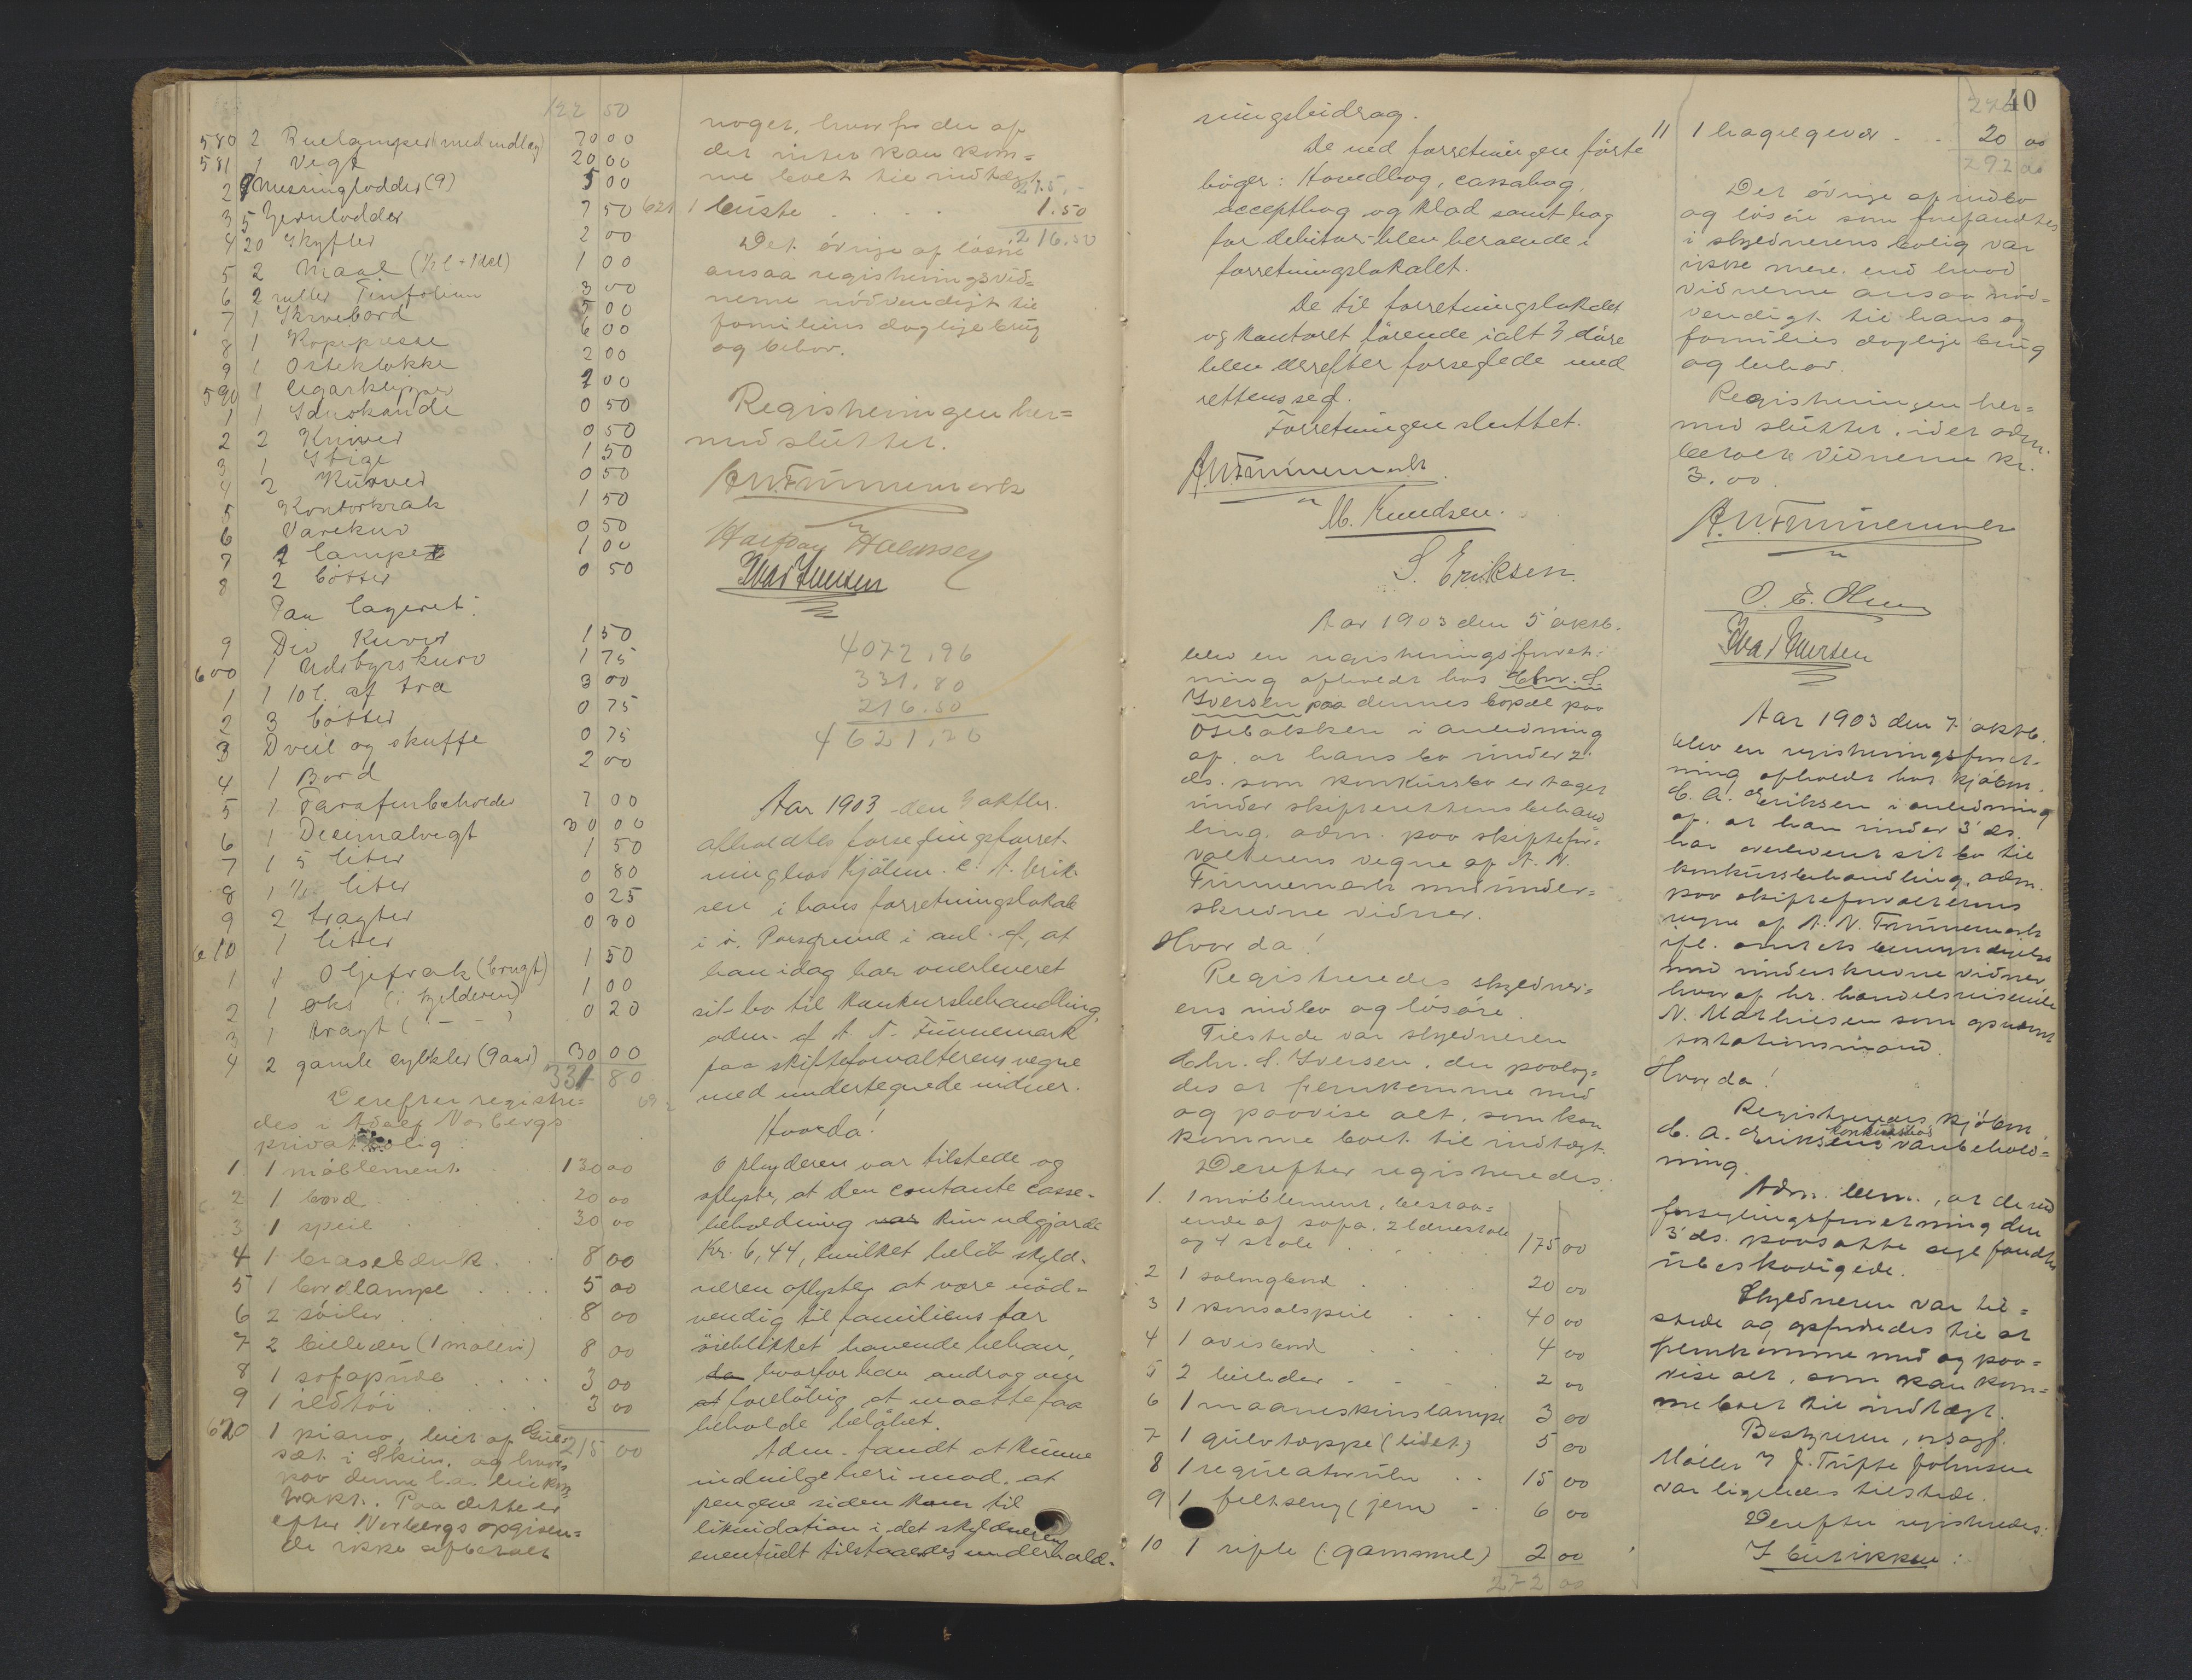 122 50
580 2 Buelamper (med indlag) 70 00
581 1 Vegt 20 00
2 9 Messinglodder (9) 5 00
3 5 Jernlodder 7 50
4 20 Skyfler 2 00
5 2 Maal (½ l + 1 del) 1 00
6 2 ruller Tinfolium 3 00
7 1 Skrivebord 5 00
8 1 Kopipresse 6 00
9 1 Osteklokke 2 00
590 1 Cigarklipper 2 00
1 1 Sauskande 0 50
2 2 Kniver 0 50
3 1 Stige 1 50
4 2 Kurver 0 50
5 Kontorkrak 1 50
6 Varekurv 0 50
7 1 lampe 1 00
8 2 bötter 0 50
Paa lageret:
9 Div Kurver 1 50
600 1 Udsbyrskurv 1 75
1 1 10 l. af træ 3 00
2 3 bötter 0 75
3 Dveil og skuffe 0 75
4 1 Bord 2 00
5 1 Parafinbeholder 7 00
6 1 Decimalvegt 30 00
7 1 5 liter 1 50
8 1 ½ liter 0 80
9 2 tragter 0 25
610 1 liter 0 30
1 1 Oljefrak (brugt) 1 50
2 1 Øks (i kjelderen) 1 00
3 1 tragt ( — — ) 0 20
4 2 gamle cykler (9 aar) 30 00
331 80
Derefter registre=
des i Adolf Norbergs
privatbolig:
1. 1 möblement 130 00
2 1 bord 20 00
3 1 speil 30 00
4 1 brasebænk 8 00
5 1 bordlampe 5 00
6 2 söiler 8 00
7 2 billeder (1 maleri) 8 00
8 1 sofapude 3 00
9 1 ildtöi 3 00
620 1 piano, leiet af Gul=
215 00
sæt i Skien, og hvor=
paa denne har leiekon=
trakt. Paa dette er
efter Norbergs opgiven=
de ikke afbetalt
noget, hvorfor der af
det intet kan kom=
me boet til indtægt
215,-
621 1 büste 1.50
216.50
Det övrige af lösöre
ansaa registreringsvid=
nerne nödvendigt til
familiens daglige brug
og behov.
Registreringen her=
med sluttet.
A. N. Finnemark
Halfdan Halvorsen
Ivar Iversen
4072,96
331,80
216.50
4621,26
Aar 1903 den 3 oktbr.
afholdtes forseglingsforret-
ning hos Kjöbm. C. A. Erik-
sen i hans forretningslokale
i ö. Porsgrund i anl. af, at
han idag har overleveret
sit bo til konkursbehandling,
adm. af A. N. Finnemark
paa skifteforvalterens vegne
med undertegnede vidner.
Hvorda!
Opbyderen var tilstede og
oplyste, at den contante casse-
beholdning var kun udgjorde
Kr. 6,44, hvilket belöb skyld-
neren oplyste at være nöd-
vendig til familiens for
öieblikket havende behov,
da hvorfor han androg om
at forelöbig at maatte faa
beholde belöbet.
Adm. fandt at kunne
indvilge heri mod, at
pengene siden kom til
likvidation i det skyldneren
eventuelt tilstaaedes underhold-
ningsbidrag.
De ved forretningen förte
böger: Hovedbog, cassabog,
acceptbog og klad samt bog
for debitor blev beroende i
forretningslokalet.
De til forretningslokalet
og kontoret förende ialt 3 döre
blev derefter forseglede med
rettens segl.
Forretningen sluttet.
A. N. Finnemark
M. Knudsen.
S. Eriksen.
Aar 1903 den 5' oktb.
blev en registreringsforret-
ning afholdt hos Chr. S.
Iversen paa dennes bopæl paa
Osebakken i anledning
af, at hans bo under 2'
ds. som konkursbo er taget
under skifterettens behand
ling, adm. paa skiftefor=
valterens vegne af A. N.
Finnemark med under=
skrevne vidner.
Hvor da!
Registreredes skyldner=
ens indbo og lösöre.
Tilstede var skyldneren
Chr. S. Iversen, der paalag=
des at fremkomme med
og paavise alt, som kan
komme boet til indtægt.
Derefter registreredes:
1. 1 möblement, bestaa=
ende af sofa, 2 lænestole
og 4 stole 175 00
2 1 salongbord 20 00
3 1 konsolspeil 40 00
4 1 avisbord 4 00
5 2 billeder 2 00
6 1 maaneskinslampe 3 00
7 1 gulvtæppe (lidet) 5 00
8 1 regulatoruhr 15 00
9 1 feltseng (jern) 6 00
10 1 rifle (gammel) 2 00
272 00
40
272
11 1 haglgevær 20 00
292 00
Det övrige af indbo
og lösöre som forefandtes
i skyldnerens bolig var
ikke mere end hvad
vidnerne ansaa nöd=
vendigt til hans og
families daglige brug
og behov.
Registreringen her=
med sluttet, idet adm.
betalte vidnerne kr.
3.00.
A. N. Finnemark
O. E. Olsen
Ivar Iversen
Aar 1903 den 7' oktb.
blev en registreringsforret-
ning afholdt hos kjöbm.
C. A. Eriksen i anledning
af, at han under 3' ds.
har overleveret sit bo til
konkursbehandling, adm.
paa skifteforvalterens
vegne af A. N. Finnemark
ifl. amtets bemyndigelse
med underskrevne vidner
hvoraf hr. handelsreisende
N. Mathiesen som opnævnt
taxtationsmand.
Hvor da!
Registreredes kjöbm.
C. A. Eriksens konkursbos varebehold=
ning.
Adm. bem., at de ved
forseglingsforretning den
3' ds. paasatte segl fandtes
ubeskadigede.
Skyldneren var til=
stede og opfordredes til at
fremkomme med og paa=
vise alt, som kan kom=
me boet til indtægt.
Bestyreren, osagf.
Möller I J. Trifte Johnsen
var ligeledes tilstede.
Derefter registreredes:
I butikken: